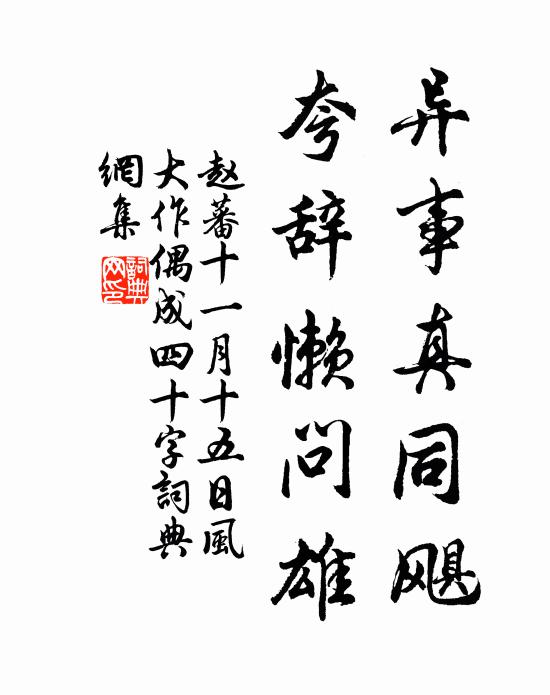 异事真同飓
夸辞懒问雄
赵蕃十一月十五日風
大作偶成四十字詞典
網集
詞典網印